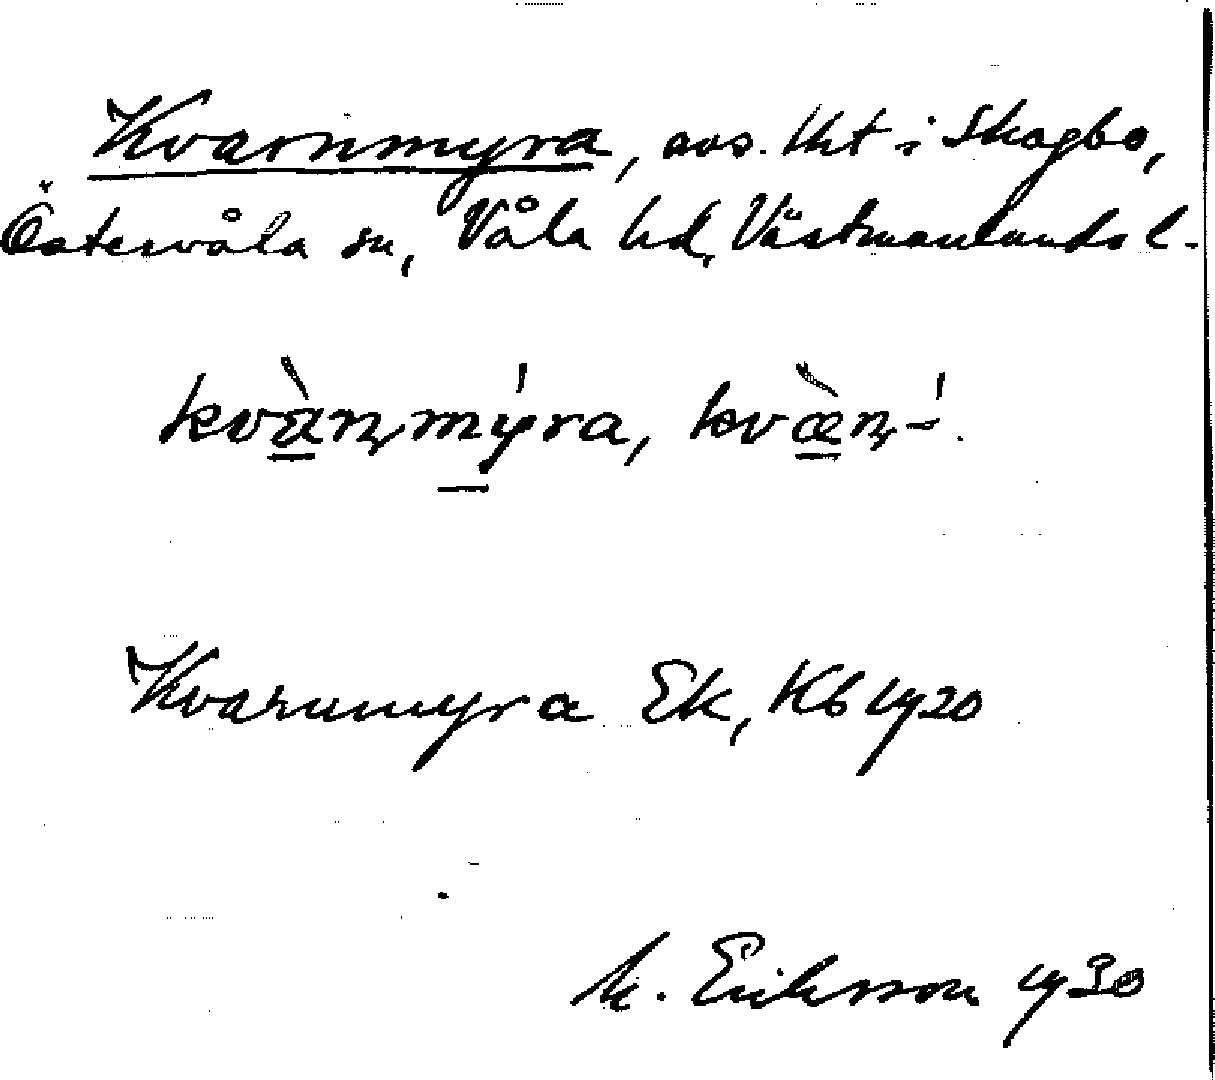 Kvarnmyra, avs. lht i Skogbo,
Östervåla sn, Våla hd, Västmanlands l.
kvàn̥mýra, kvæ̀n̥-́.
Kvarnmyra Ek, Kb 1920
M. Eriksson 1930